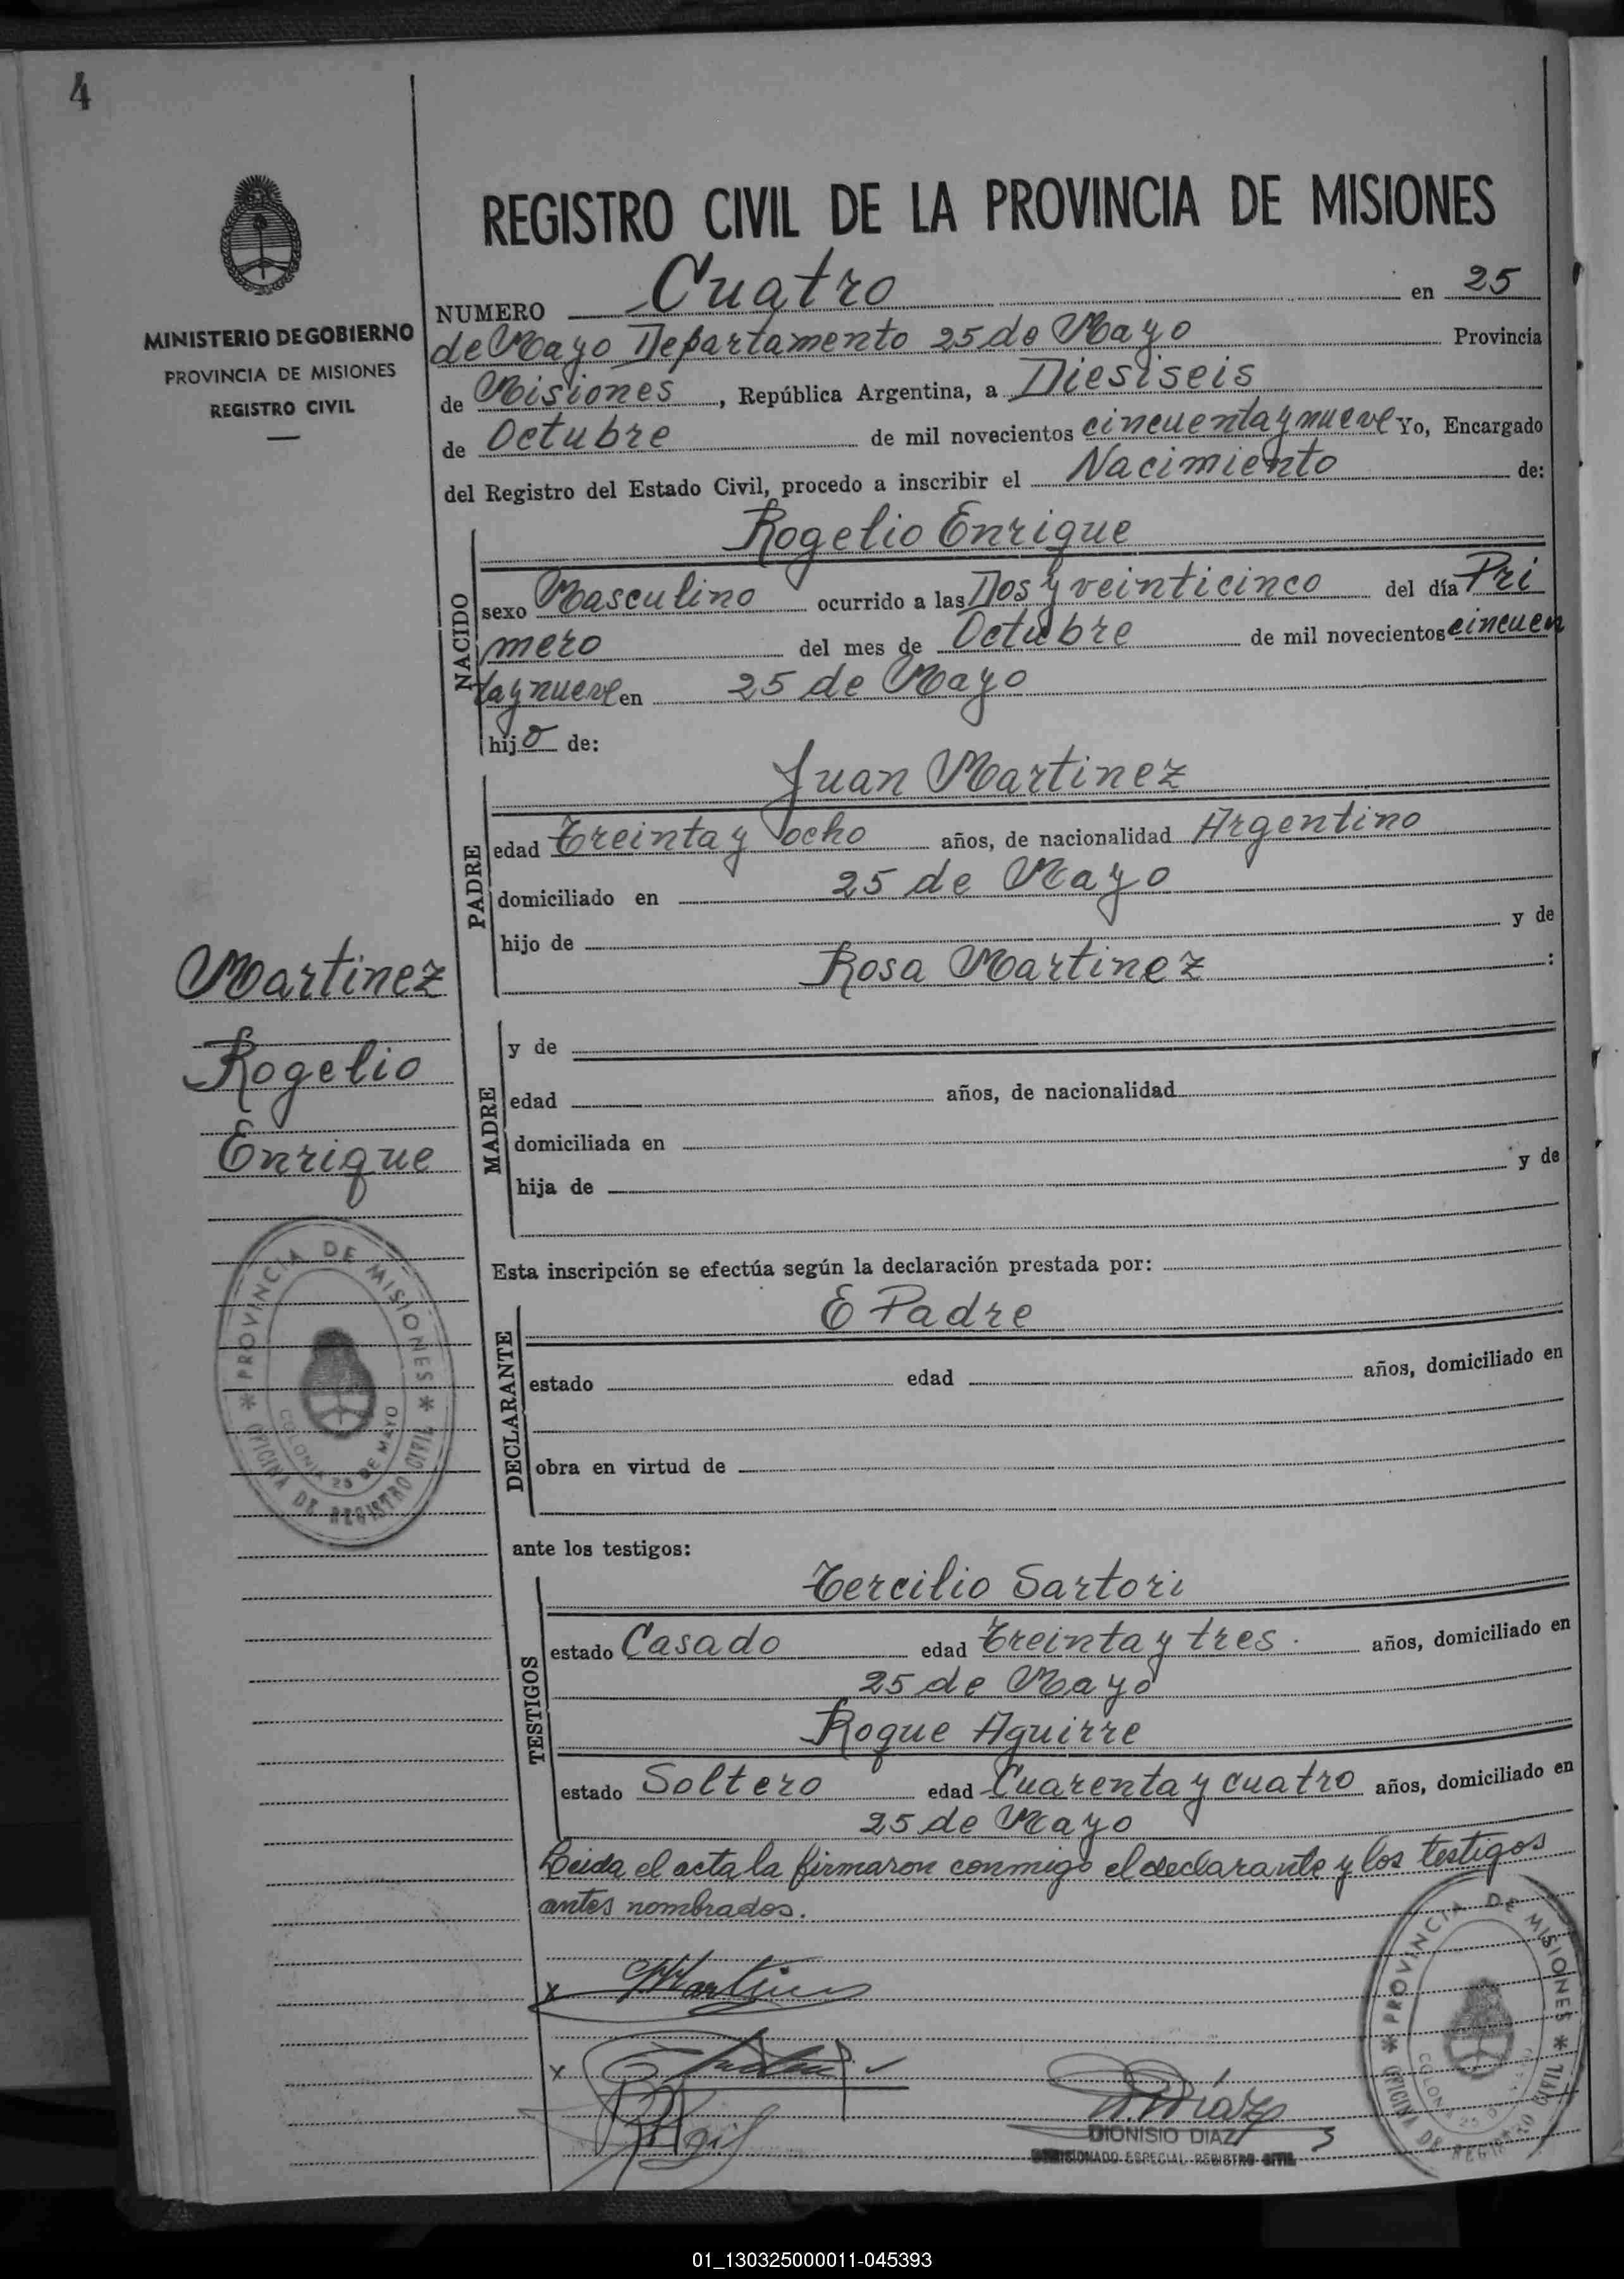 4
MINISTERIO DE GOBIERNO
PROVINCIA DE MISIONES
REGISTRO CIVIL
REGISTRO CIVIL DE LA PROVINCIA DE MISIONES
NUMERO Cuatro en 25
de Mayo Departamento 25 de Mayo Provincia
de Misiones, República Argentina, a Diesiseis
de Octubre de mil novecientos cincuenta y nueve Yo, Encargado
del Registro del Estado Civil, procedo a inscribir el Nacimiento de:
NACIDO
Rogelio Enrique
sexo Masculino ocurrido a las Dos y veinticinco del día Pri
mero del mes de Octubre de mil novecientos cincuen
ta y nueve en 25 de Mayo
hijo de:
PADRE
Juan Martinez
edad Treinta y ocho años, de nacionalidad Argentino
domiciliado en 25 de Mayo
hijo de y de
Rosa Martinez :
Martinez
Rogelio
Enrique
MADRE
y de
edad años, de nacionalidad
domiciliada en
hija de y de
Esta inscripción se efectúa según la declaración prestada por:
DECLARANTE
E Padre
estado edad años, domiciliado en
obra en virtud de
PROVINCIA DE MISIONES
OFICINA DE REGISTRO CIVIL
COLONIA 25 DE MAYO
ante los testigos:
TESTIGOS
Tercilio Sartori
estado Casado edad Treinta y tres. años, domiciliado en
25 de Mayo
Roque Aguirre
estado Soltero edad Cuarenta y cuatro años, domiciliado en
25 de Mayo
Leida el acta la firmaron conmigo el declarante y los testigos
antes nombrados.
x Martinez
x
D. Díaz
DIONISIO DIAZ
COMISIONADO ESPECIAL REGISTRO CIVIL
PROVINCIA DE MISIONES
OFICINA DE REGISTRO CIVIL
COLONIA 25 DE MAYO
01_130325000011-045393